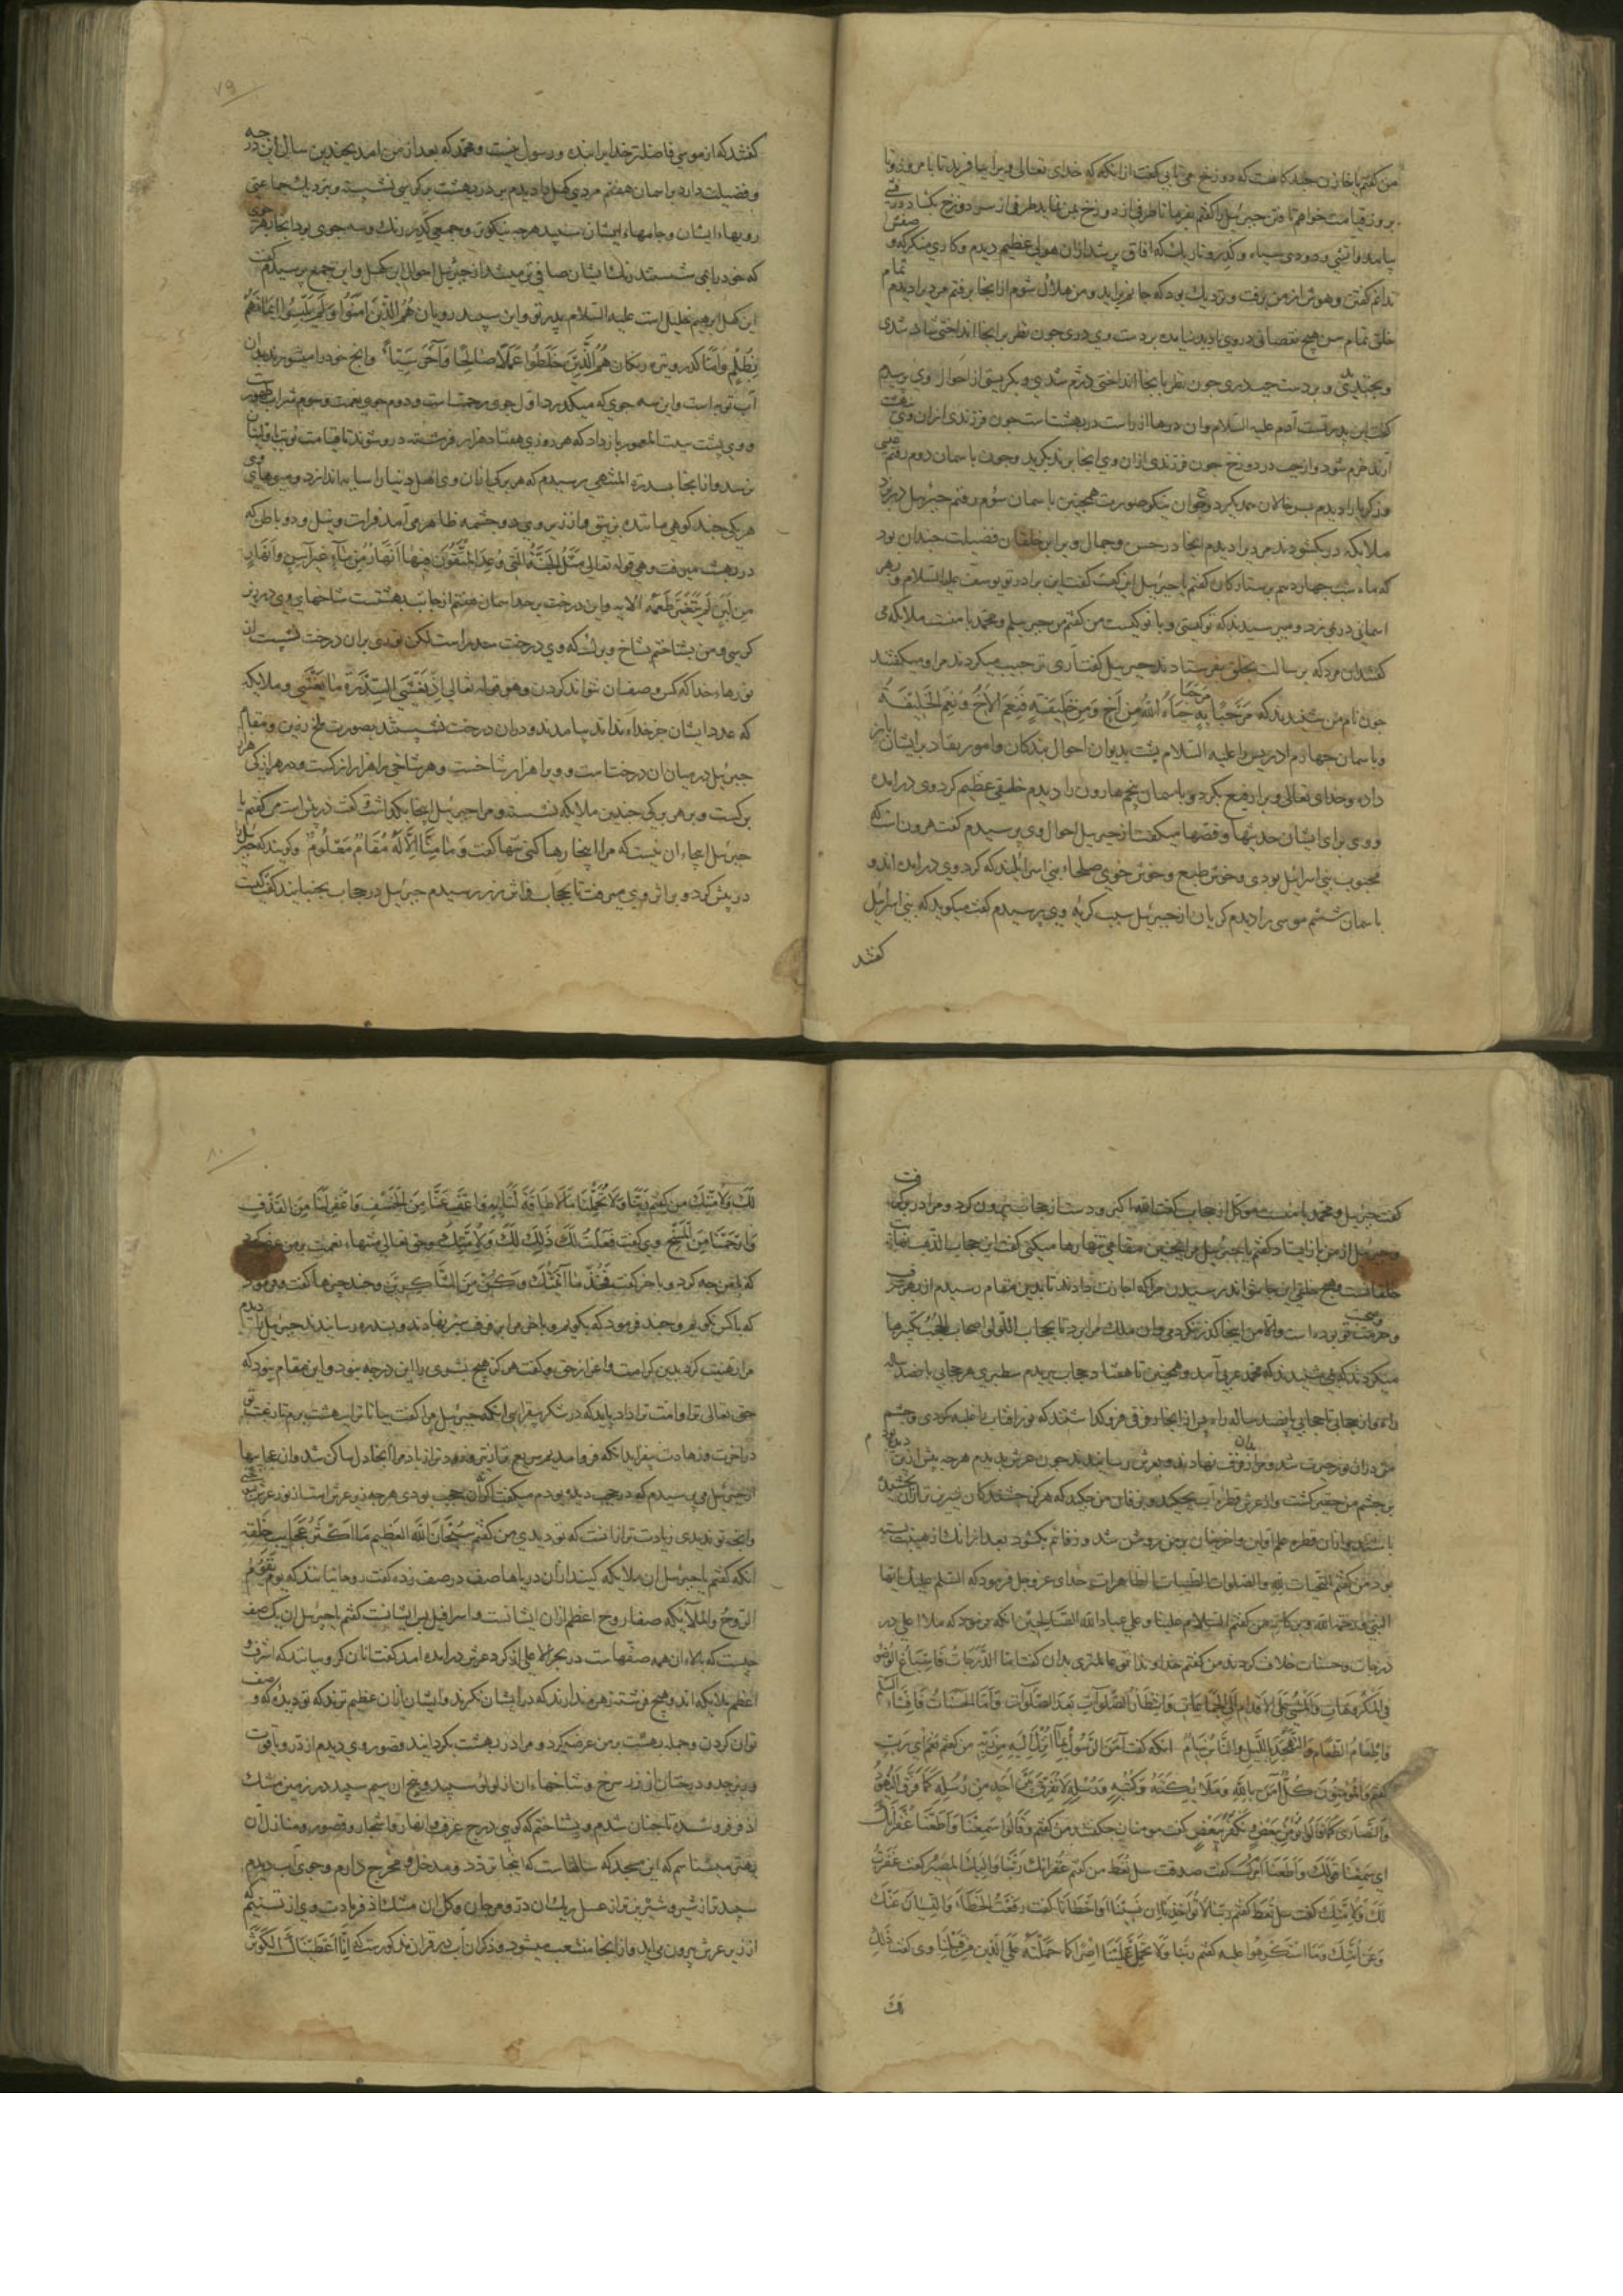 من گفتم یا خازن چند گاهست که دوزخ می تابی گفت از آنگه که خدای تعالی ویرا بیافریند تا بامروز و تا
بروز قیامت خواهم تافتن جبرئیل را گفتم بفرما تا طرفی از دوزخ بمن نماید طرفی از سر دوزخ بگشاد
بیامد و آتشی و دودی سیاه و کدر و تاریک که آفاق پر شد از آن هولی عظیم دیدم و کاری منکر که
ندانم گفتن و هوش از من برفت و نزدیک بود که جانم برآید و من هلاک شوم از آنجا برفتم مردی را دیدم تمام
خلق تمام سن هیچ نقصانی در وی نادید بر دست وی دری چون نظر بر آنجا انداختی شاد شدی
و بخندیدی و بر دست چپ دری چون نظر بآنجا انداختی دژم شدی و بگریستی از احوال وی پرسیدم
گفت این پدر تست آدم علیه السلام و آن درها از راست در بهشت است چون فرزندی از آن وی
آرند خرم شود و از چپ در دوزخ چون فرزندی از آن وی آنجا برند بگرید و چون بآسمان دوم رفتم عیسی
و زکریا را دیدم جوان نیکو صورت همچنین بآسمان سوم رفتم جبرئیل در بزد
ملایکه در بگشودند مردی را دیدم آنجا در حسن و جمال ویرا بر خلقان فضیلت چندان بود
که ماه شب چهاردهم بر ستارگان گفتم یا جبرئیل این کیست گفت این برادر تو یوسف علیه السلام و بهر
آسمانی در می زد و می پرسیدند که تو کیستی و با تو کیست من گفتم من جبرئیلم و محمد با منست ملایکه می
گفتند آن مرد که برسالت بخلق بفرستادند جبرئیل گفت آری ترحیب میکردند مرا و میگفتند
چون نام من شنیدند که مرحبا به جاء الله من اخ و من خلیفة فنعم الاخ و نعم الخلیفة
و بآسمان چهارم ادریس را علیه السلام پشت بدیوان احوال بندگان و امور بعباد بر ایشان باز
داده و خدای تعالی ویرا رفیع بکرد و بآسمان پنجم هارون را دیدم خلقی عظیم گرد وی درآمده
و وی برای ایشان حدیثها و قصها میگفت از جبرئیل احوال وی پرسیدم گفت هرون است که
محبوب بنی اسرائیل بودی و خوش طبع و خوش خوی صلحاء بنی اسرائیلند که گرد وی درآمده اند و
بآسمان ششم موسی را دیدم گریان از جبرئیل سبب گریه وی پرسیدم گفت میگوید که بنی اسرائیل
گفتند
۷۹
گفتند که از موسی فاضلتر خدایرا بنده و رسول نیست و محمد که بعد از من آمد بچندین سال این درجه
و فضیلت دارد بآسمان هفتم مردی کهل را دیدم بر در بهشت بر کرسی نشسته و نزدیک جماعتی
رویهاء ایشان و جامهاء ایشان سپید هرچه نیکوتر و جمعی کدر رنگ و سه جوی بود آنجا
که خود را می شستند رنگ ایشان صافی تر میشد از جبرئیل احوال این کهل و این جمع پرسیدم گفت
این کهل ابرهیم خلیل است علیه السلام پدر تو و این سپید رویان هم الذین آمنوا ولم یلبسوا ایمانهم
بظلم و اما کدر و تیره رنگان هم الذین خلطوا عملا صالحا و آخر سیئا و آنچ خود را میشویند بدان
آب توبه است و این سه جوی که میگذرد اول جوی رحمتست و دوم جوی نعمت و سوم شراب طهور
و وی پشت ببیت المعمور باز داد که هر روزی هفتاد هزار فرشته در وی شوند تا قیامت
نرسد و از آنجا بسدرة المنتهی رسیدم که هر برگی از آن وی اهل دنیا را سایه اندازد و میوهای
هر یکی چند کوهی مانند و از زیر وی دو چشمه ظاهر می آمد فرات و نیل و دو باطن که
در بهشت میرفت و هی قوله تعالی مثل الجنة التی وعد المتقون فیها انهار من ماء غیر آسن و انهار
من لبن لم یتغیر طعمه الآیه و این درخت بر حد آسمان هفتم از جانب بهشتست شاخهای وی در زیر
کرسی و من بشناختم بشاخ و برگ که وی درخت سدره است لکن نوری بر آن درخت نشیسته از
نورهاء خدا که کس وصف آن نتواند کردن و هو قوله تعالی اذ یغشی السدرة ما یغشی و ملایکه
که عدد ایشان جز خدا نداند بیامدند و در آن درخت نشستند بصورت ملخ زرین و مقام
جبرئیل در میان آن درختست و ویرا هزار شاخست و هر شاخی را هزار
برگست و بر هر برگی چندین ملایکه نشسته و مرا جبرئیل اینجا بگذاشت گفت در پیش است من گفتم یا
جبرئیل اینجاء آن نیست که مرا اینجا رها کنی تنها گفت و ما منا الا له مقام معلوم و گویند که جبرئیل
در پیش کرد و بر اثر وی میرفت تا بحجاب فراش زر رسیدم جبرئیل در حجاب بجنبانید گفت کیست
گفت جبرئیل و محمد با منست موکل از حجاب گفت الله اکبر و دست از حجاب بیرون کرد و مرا در
و جبرئیل از من باز ایستاد گفتم یا جبرئیل مرا در چنین مقامی تنها رها میکنی گفت این حجاب الذهب نهایت
خلقانست و هیچ خلقی این جا نتواند رسیدن مرا که اجازت دادند تا بدین مقام رسیدم از بهر شرف
و حرمت تو بوده است والا من اینجا گذر نکردمی و آن ملک مرا برد تا بحجاب اللؤلؤ اصحاب الحجب تکبیرها
میکردند که می شنیدند که محمد عربی آمد و همچنین تا هفتاد حجاب ببریدم سطبری هر حجابی پانصد ساله
راه و از حجابی تا حجابی پانصد ساله راه پس از آنجا رفرفی فرو گذاشتند که نور آفتاب را غلبه کردی و چشم
من در آن نور حیرت شد و مرا بر آن رفرف نهادند و بعرش رسانیدند چون عرش بدیدم هرچه پیش از آن دیده بودم
بر چشم من حقیر گشت و از عرش قطره آب بچکید و بر زفان من چکید که هرگز چشندگان شیرین تر از آن نچشیده
باشند و از آن قطره علم اولین و آخرینان بر من روشن شد و زفانم بگشود بعد از آنک از هیبت بسته
بود من گفتم التحیات لله والصلوات الطیبات الطاهرات خدای عز وجل فرمود که السلام علیک ایها
النبی ورحمة الله وبرکاته من گفتم السلام علینا وعلی عباد الله الصالحین آنگه فرمود که ملا اعلی در
درجات و حسنات خلاف کردند من گفتم خداوندا تو عالمتری بدان گفت اما الدرجات فاسباغ الوضوء
فی المکروهات والمشی علی الاقدام الی الجماعات وانتظار الصلوات بعد الصلوات واما الحسنات فافشاء السلام
واطعام الطعام والتهجد باللیل والناس نیام آنگه گفت آمن الرسول بما انزل الیه من ربه من گفتم نعم ای رب
گفتم والمؤمنون کل آمن بالله وملائکته وکتبه ورسله لا نفرق بین احد من رسله کما فرق الیهود
والنصاری کما قالوا نؤمن ببعض ونکفر ببعض گفت مومنان چگفتند من گفتم وقالوا سمعنا واطعنا غفرانک
ای سمعنا قولک واطعنا امرک گفت صدقت سل تعط من گفتم غفرانک ربنا والیک المصیر گفت غفرت
لک ولامتک گفت سل تعط گفتم ربنا لا تؤاخذنا ان نسینا او اخطانا گفت رفعت الخطاء والنسیان عنک
وعن امتک وما استکرهوا علیه گفتم ربنا ولا تحمل علینا اصرا کما حملته علی الذین من قبلنا وی گفت ذلک
لک
۸۰
لک ولامتک من گفتم ربنا ولا تحملنا ما لا طاقة لنا به واعف عنا من الخسف واغفر لنا من القذف
وارحمنا من المسخ وی گفت فعلت لک ذلک لک ولامتک و حق تعالی منتهاء نعمت بر من عرضه کرد
که با من چه کرد و بآخر گفت فخذ ما آتیتک وکن من الشاکرین و چند چیزها گفت و فرمود
که با کس نگویم و چند فرمود که بگویم و بآخر مرا بر رفرف سبز نهادند و بسدره رسانیدند جبرئیل را دیدم
مرا تهنیت کرد بدین کرامت و اعزاز حق و گفت هرگز هیچ بشری را این درجه نبود و این مقام نبود که
حق تعالی ترا و امت ترا داد باید که در شکر بیفزایی آنگه جبرئیل مرا گفت بیا تا ترا ببهشت برم تا رغبت
در آخرت و زهادت بیفزاید آنگه فرو آمدیم سریع تر از تیر و زودتر از باد مرا آنجا دل ساکن شد و آن عجایبها
از جبرئیل می پرسیدم که در حجب دیده بودم میگفت اگر آن حجب نبودی هرچه زیر عرش است از نور عرش بسوختی
و آنچه تو ندیدی زیادت تر از آنست که تو دیدی من گفتم سبحان الله العظیم ما اکثر عجایب خلقه
آنگه گفتم یا جبرئیل آن ملایکه کیند از آن دریاها صف در صف زده گفت روحانیانند که یوم یقوم
الروح والملآئکة صفا روح اعظم از آن ایشانست و اسرافیل پس ایشانست گفتم یا جبرئیل آن یک صف
چیست که بالاء آن همه صفهاست در بحر الاعلی گرد عرش درآمده اند گفت آنان کروبیانند که اشرف و
اعظم ملایکه اند و هیچ فرشته زهره ندارند که در ایشان نگرند و ایشان از آن عظیم ترند که تو دیده که وصف
توان کردن و جمله بهشت بر من عرضه کرد و مرا در بهشت بگردانیدند قصور وی دیدم از در و یاقوت
و زبرجد و درختان از زر سرخ و شاخهاء آن از لؤلؤ سپید و بیخ آن سیم سپید در زمین مشک
اذفر فرو شده تا چنان شدم و بشناختم که گویی درج غرف و انهار و اشجار و قصور و منازل آن
بهتر میشناسم که این مسجد که سالهاست که اینجا تردد و مدخل و مخرج دارم و جوی آب دیدم
سپید تر از شیر و شیرین تر از عسل ریگ آن در و مرجان و گل آن مشک اذفر یا دت وی از تسنیم
از زیر عرش بیرون می آید و از آنجا منشعب میشود و ذکر آن آب در قرآن مذکورست که انا اعطیناک الکوثر